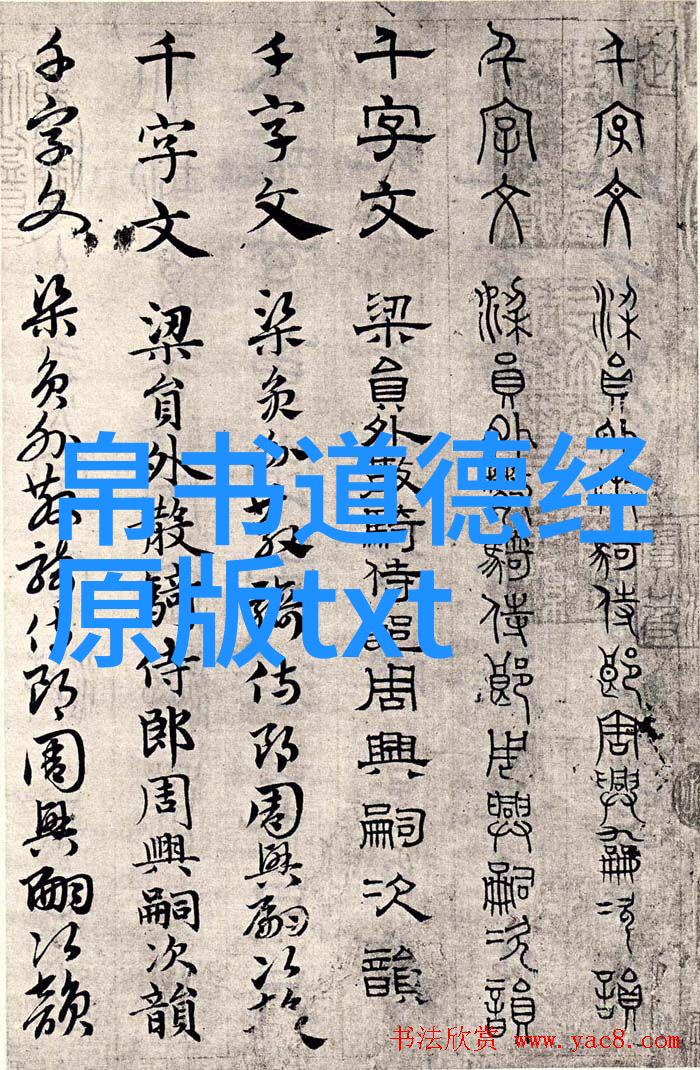 千字文 梁員外散騎侍郎周興嗣次韻
千字文 梁員外散騎侍郎周興嗣次韻
千字文 梁員外散騎侍郎周興嗣次韻
千字文 梁員外散騎侍郎周興嗣次韻
千字文 梁員外散騎侍郎周興嗣次韻
千字文 梁員外散騎侍郎周興嗣次韻
帛书道德经
原版txt
书法欣赏 www.yac8.com